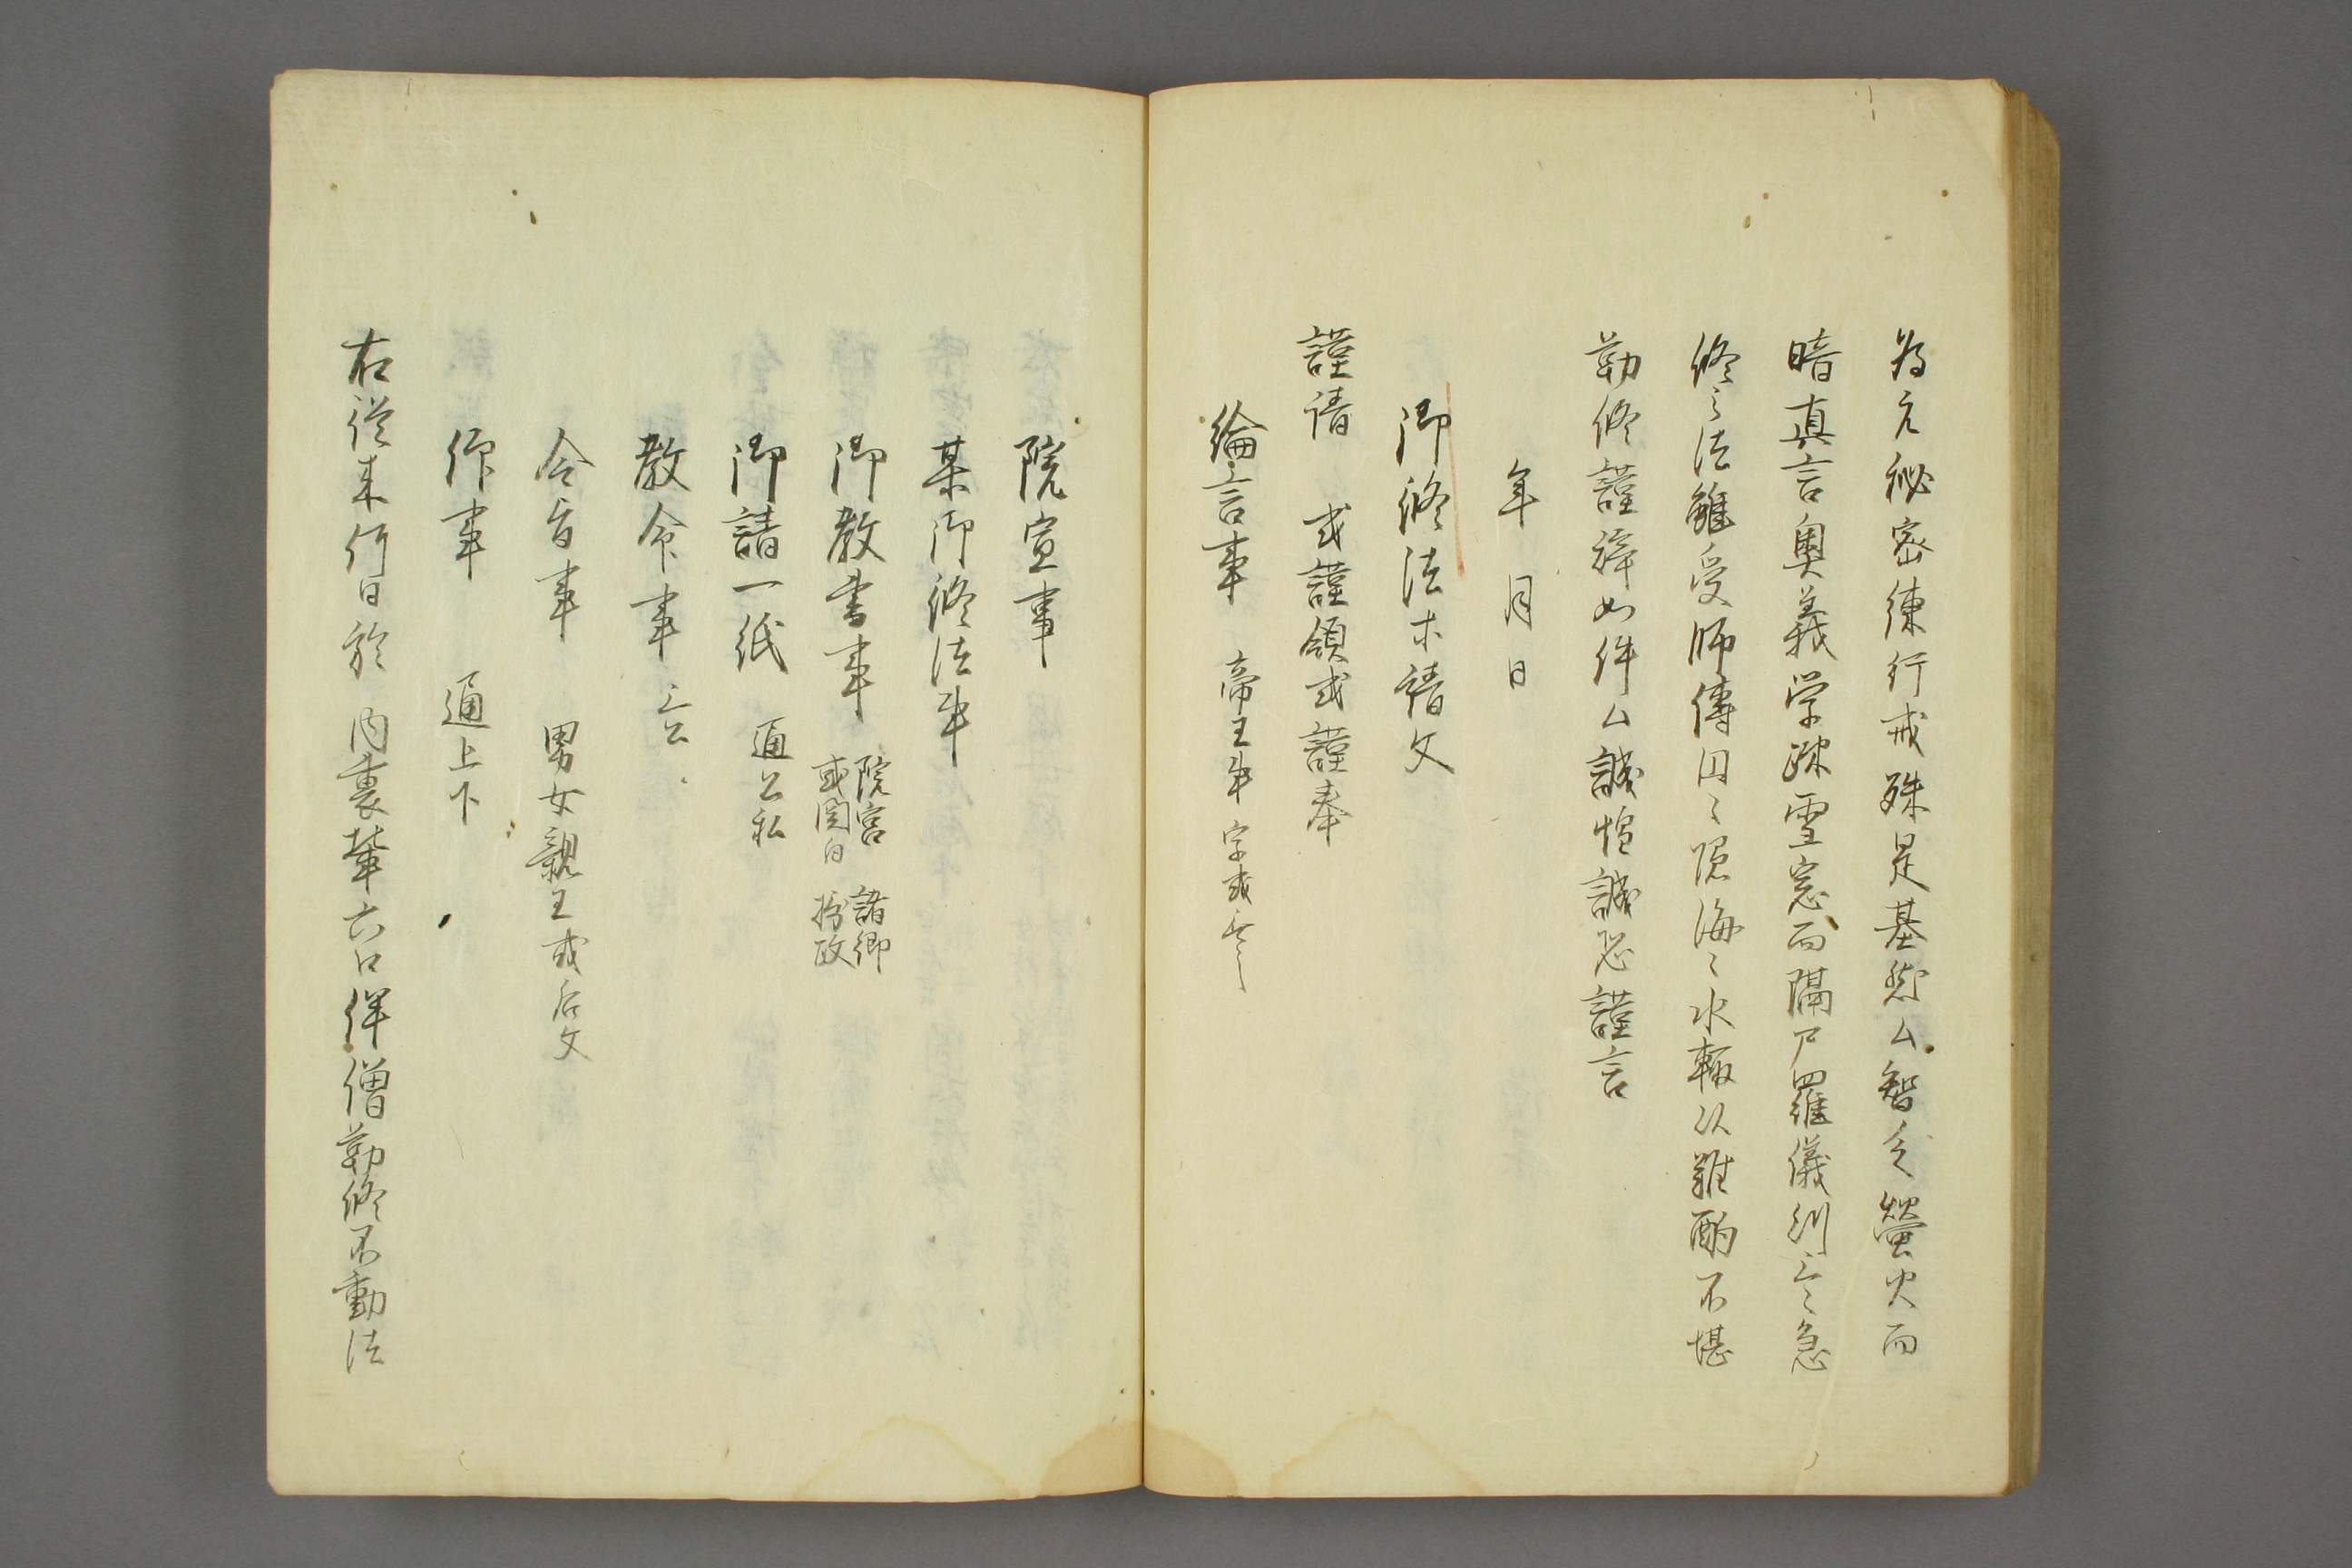 為先秘密練行戒殊是基然ム智乏螢火而
暗真言奥義学疎雪窓而隔尸羅儀則云々急
修之法雖受師傳因之隠海之水輙以難酌不堪
勤修謹辞如件ム誠惶誠恐謹言
年 月 日
御修法木請文
謹請 或謹領或謹奉
綸言事 帝王事 字或無之
院宣事
某御修法事
御教書事 院宮 諸卿
或関白 摂政
御請一紙 通公私
教命事 云云
令旨事 男女親王或后文
仰事 通上下
右従来何日於 内裏輦六口伴僧勤修不動法